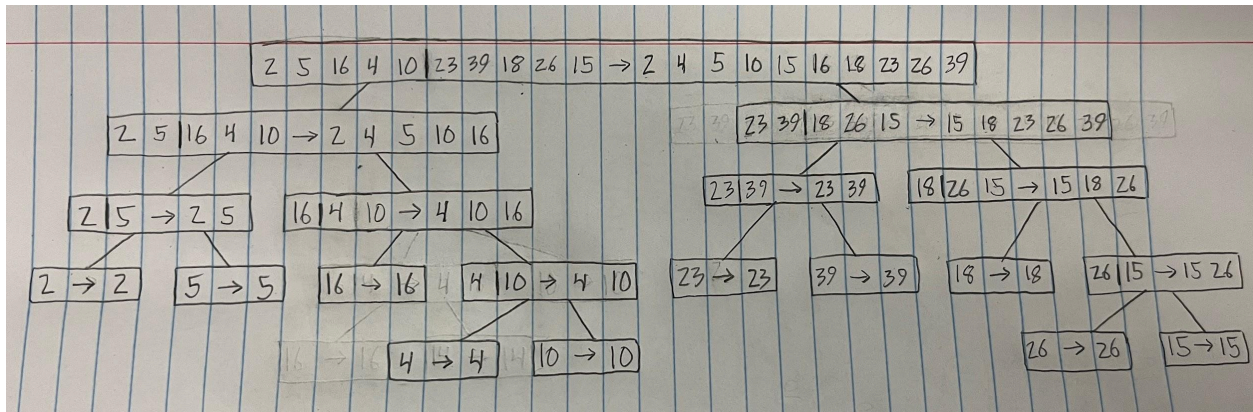 2 5 16 4 10|23 39 18 26 15 → 2 4 5 10 15 16 18 23 26 39
2 5|16 4 10 → 2 4 5 10 16
23 39|18 26 15 → 15 18 23 26 39
2|5 → 2 5
16|4 10 → 4 10 16
23|39 → 23 39
18|26 15 → 15 18 26
2 → 2
5 → 5
16 → 16
4|10 → 4 10
23 → 23
39 → 39
18 → 18
26|15 → 15 26
4 → 4
10 → 10
26 → 26
15 → 15